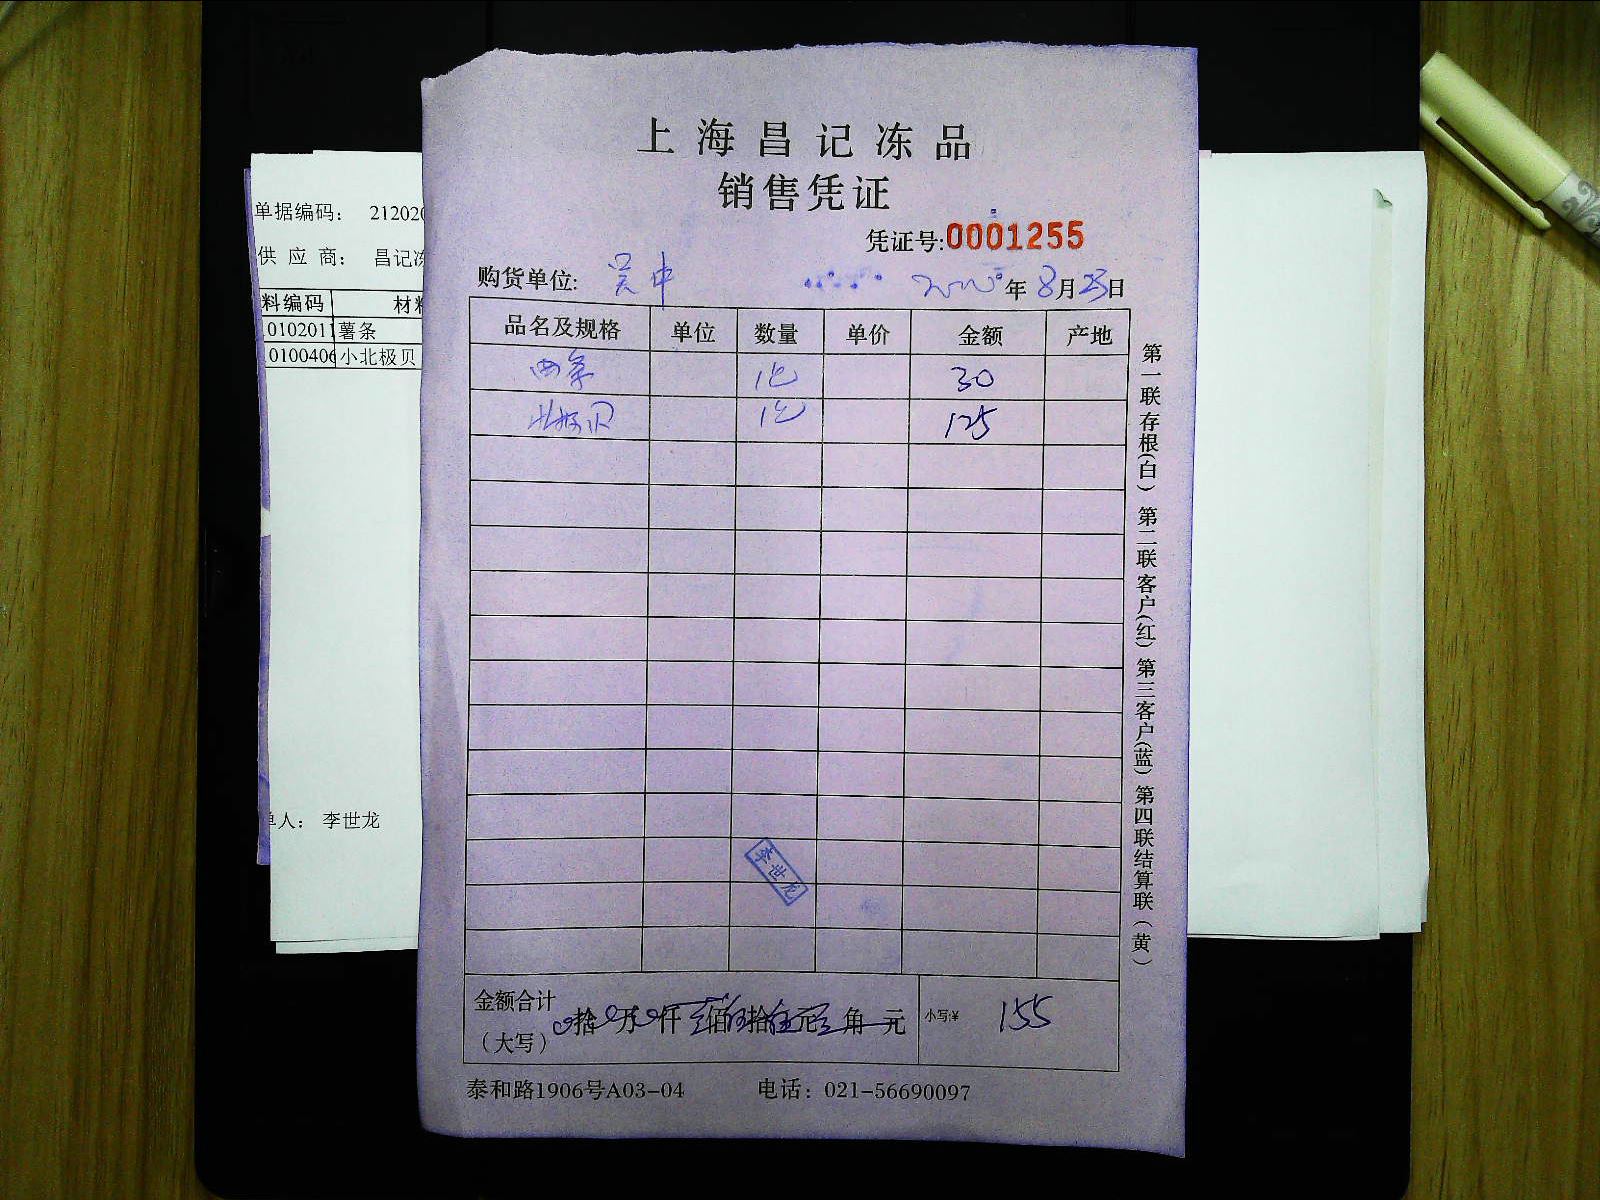 上海昌记冻品
销售凭证
凭证号:0001255
购货单位: 吴中 2020年8月25日
品名及规格 单位 数量 单价 金额 产地
1包 30
北极贝 1包 125
金额合计
(大写) 拾 万 仟 佰 拾 元 角 元 小写:¥ 155
泰和路1906号A03-04 电话: 021-56690097
第一联存根(白) 第二联客户(红) 第三客户(蓝) 第四联结算联(黄)
李世龙
单据编码: 212020
供应商: 昌记冻
料编码 材料
0102011 薯条
0100406 小北极贝
单人: 李世龙